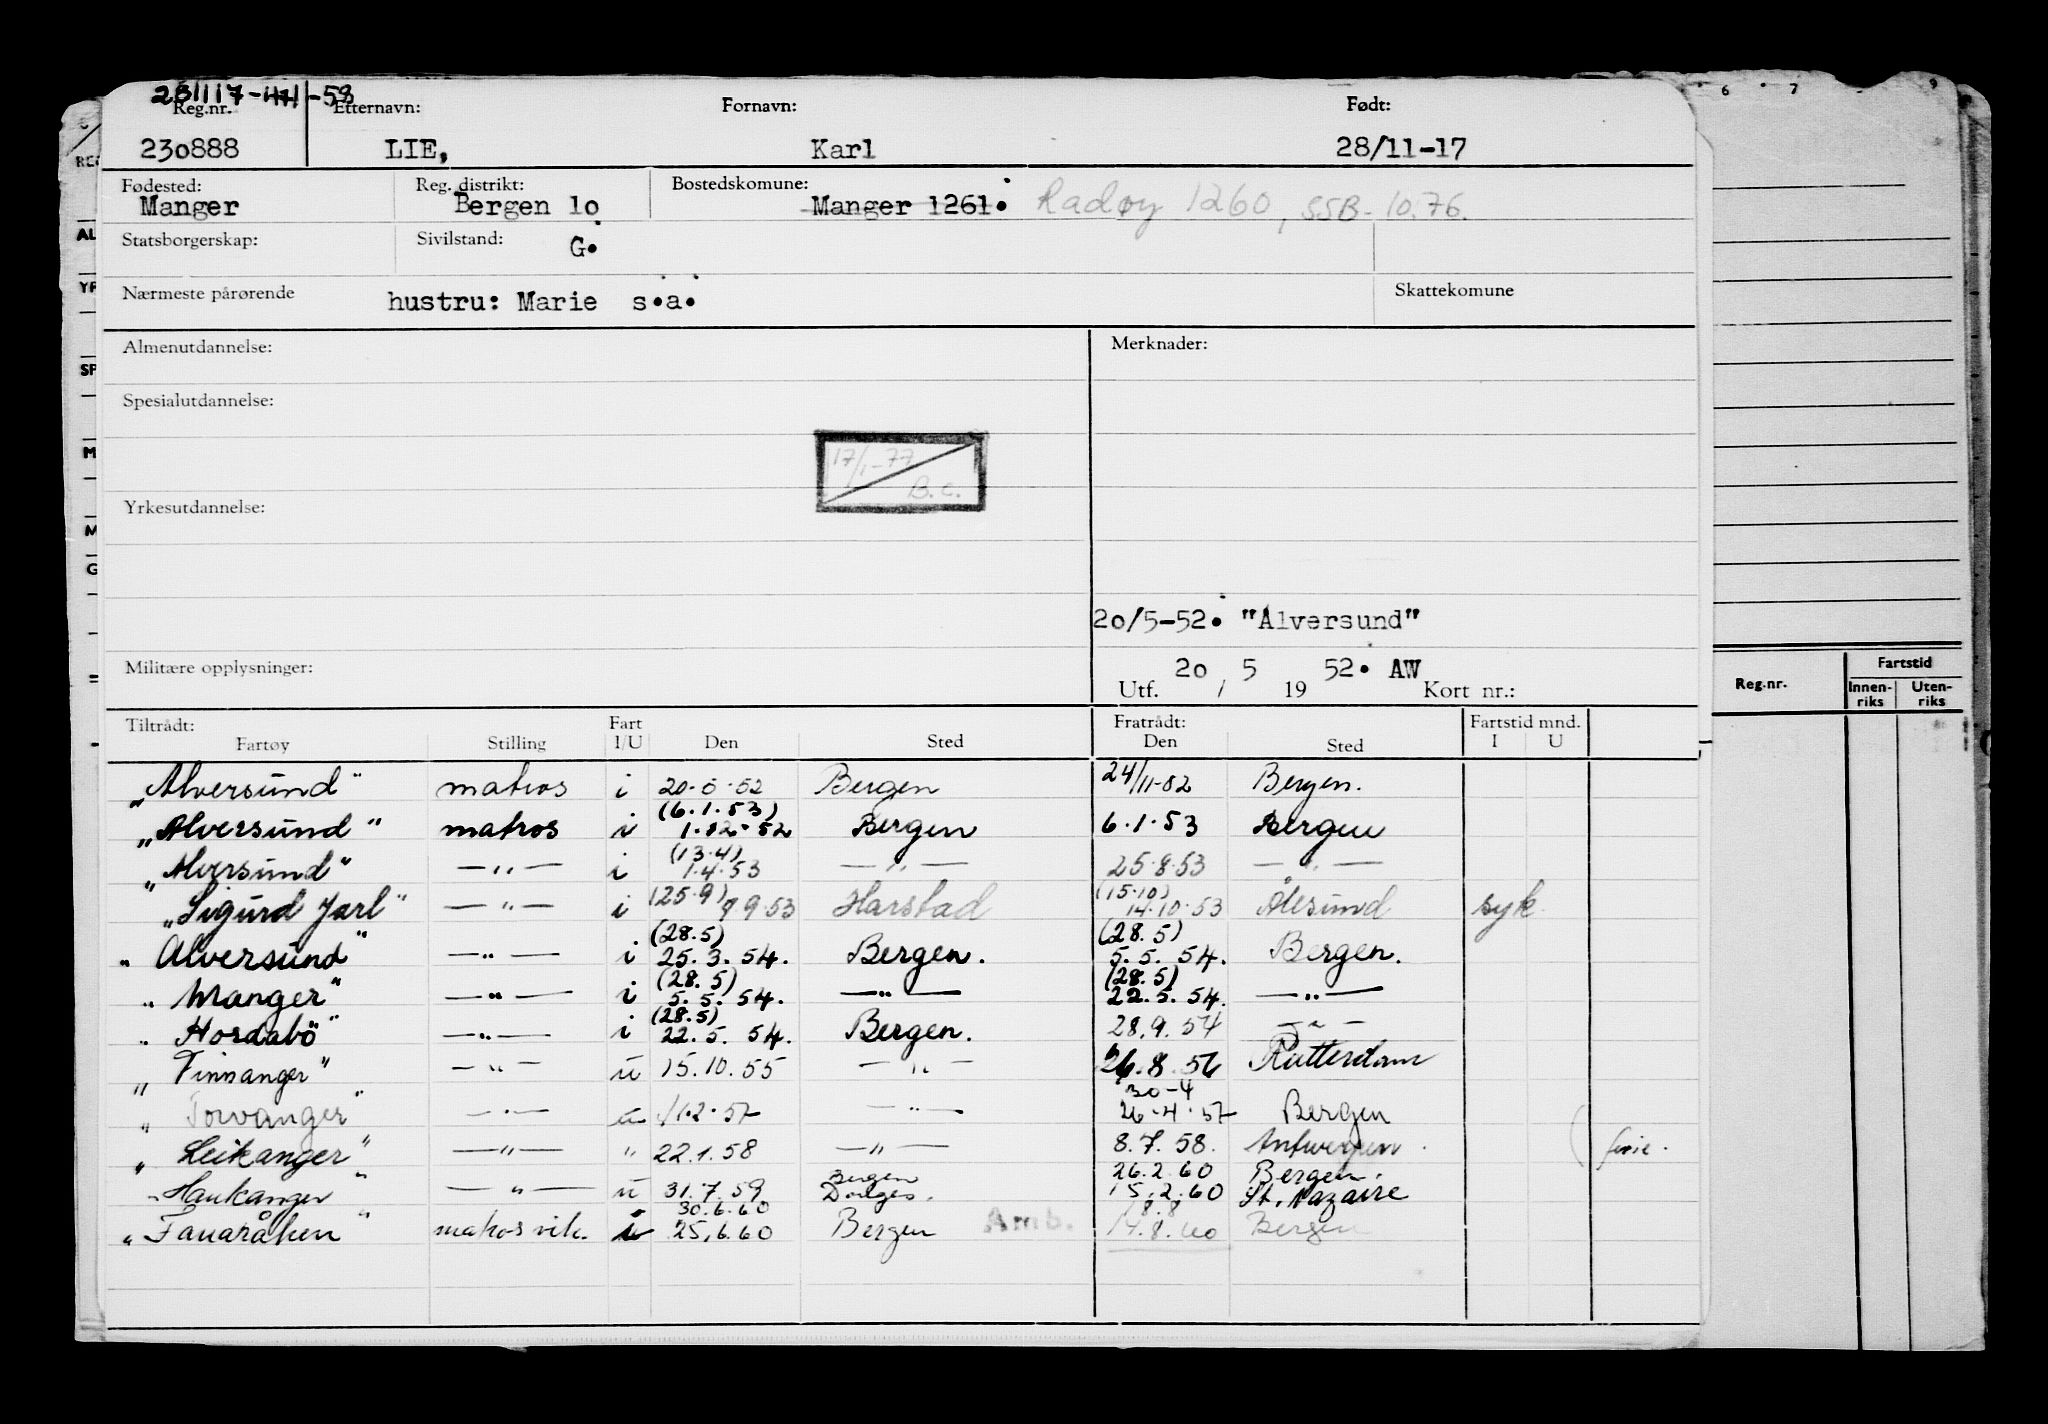 281117-
-58
Reg.nr. Etternavn: Fornavn: Født:
230888 LIE, Karl 28/11-17
Fødested: Reg. distrikt: Bostedskomune:
Manger Bergen 10 Manger 1261. Radøy 1260, SSB-10.76.
Statsborgerskap: Sivilstand: G.
Nærmeste pårørende hustru: Marie s.a. Skattekomune
Almenutdannelse: Merknader:
Spesialutdannelse:
17/1-77
B.C.
Yrkesutdannelse:
20/5-52. "Alversund"
Militære opplysninger:
Utf. 20 / 5 19 52. AW Kort nr.:
Tiltrådt: Fart Fratrådt: Fartstid mnd.
Fartøy Stilling I/U Den Sted Den Sted I U
„Alversund" matros i 20.5.52 Bergen 24/11-52 Bergen.
(6.1.53)
„Alversund" matros i 1.12.52 Bergen 6.1.53 Bergen
(13.4)
„Alversund" —"— i 1.4.53 —"— 25.8.53 —"—
(25.9) (15.10)
„Sigurd Jarl" —"— i 9.9.53 Harstad 14.10.53 Ålesund syk.
(28.5) (28.5)
„Alversund" —"— i 25.3.54. Bergen. 5.5.54. Bergen.
(28.5) (28.5)
„Manger" —"— i 5.5.54. —"— 22.5.54. —"—
(28.5)
„Hordabö" —"— i 22.5.54. Bergen. 28.9.54 —"—
„Finnanger" —"— u 15.10.55 —"— 26.8.56 Rotterdam
30-4
„Torvanger" —"— u 11.2.57 —"— 26.4.57 Bergen
„Leikanger" —"— " 22.1.58 —"— 8.7.58. Antwerpen. ferie.
Bergen 26.2.60 Bergen.
„Haukanger" —"— u 31.7.59 15.2.60 St. Nazaire
30.6.60 18.8
„Fanaråken" matros vik. i 25.6.60 Bergen Amb. 14.8.60 Bergen
6 7 9
Reg.nr. Fartstid
Innen-
riks
Uten-
riks